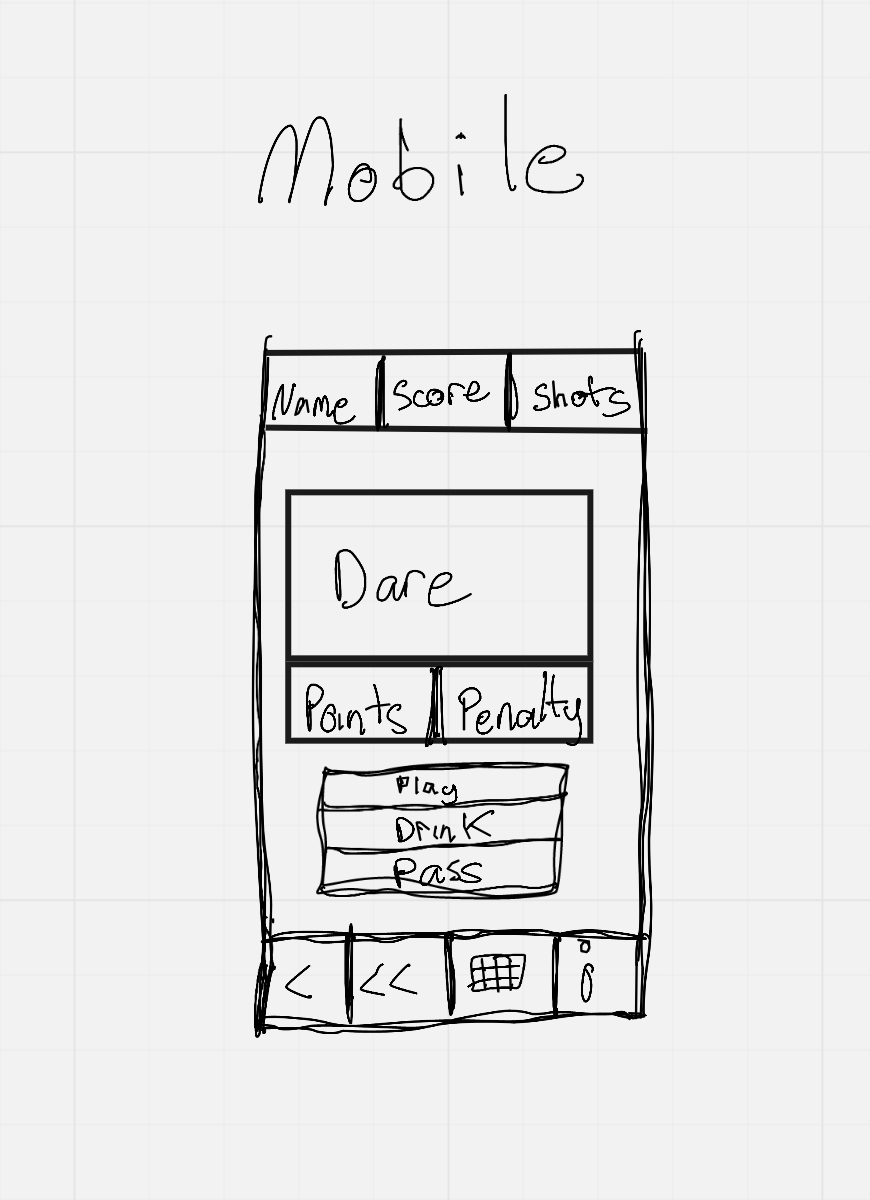 Mobile
Name Score Shots
Dare
Points Penalty
Play
Drink
Pass
< << i